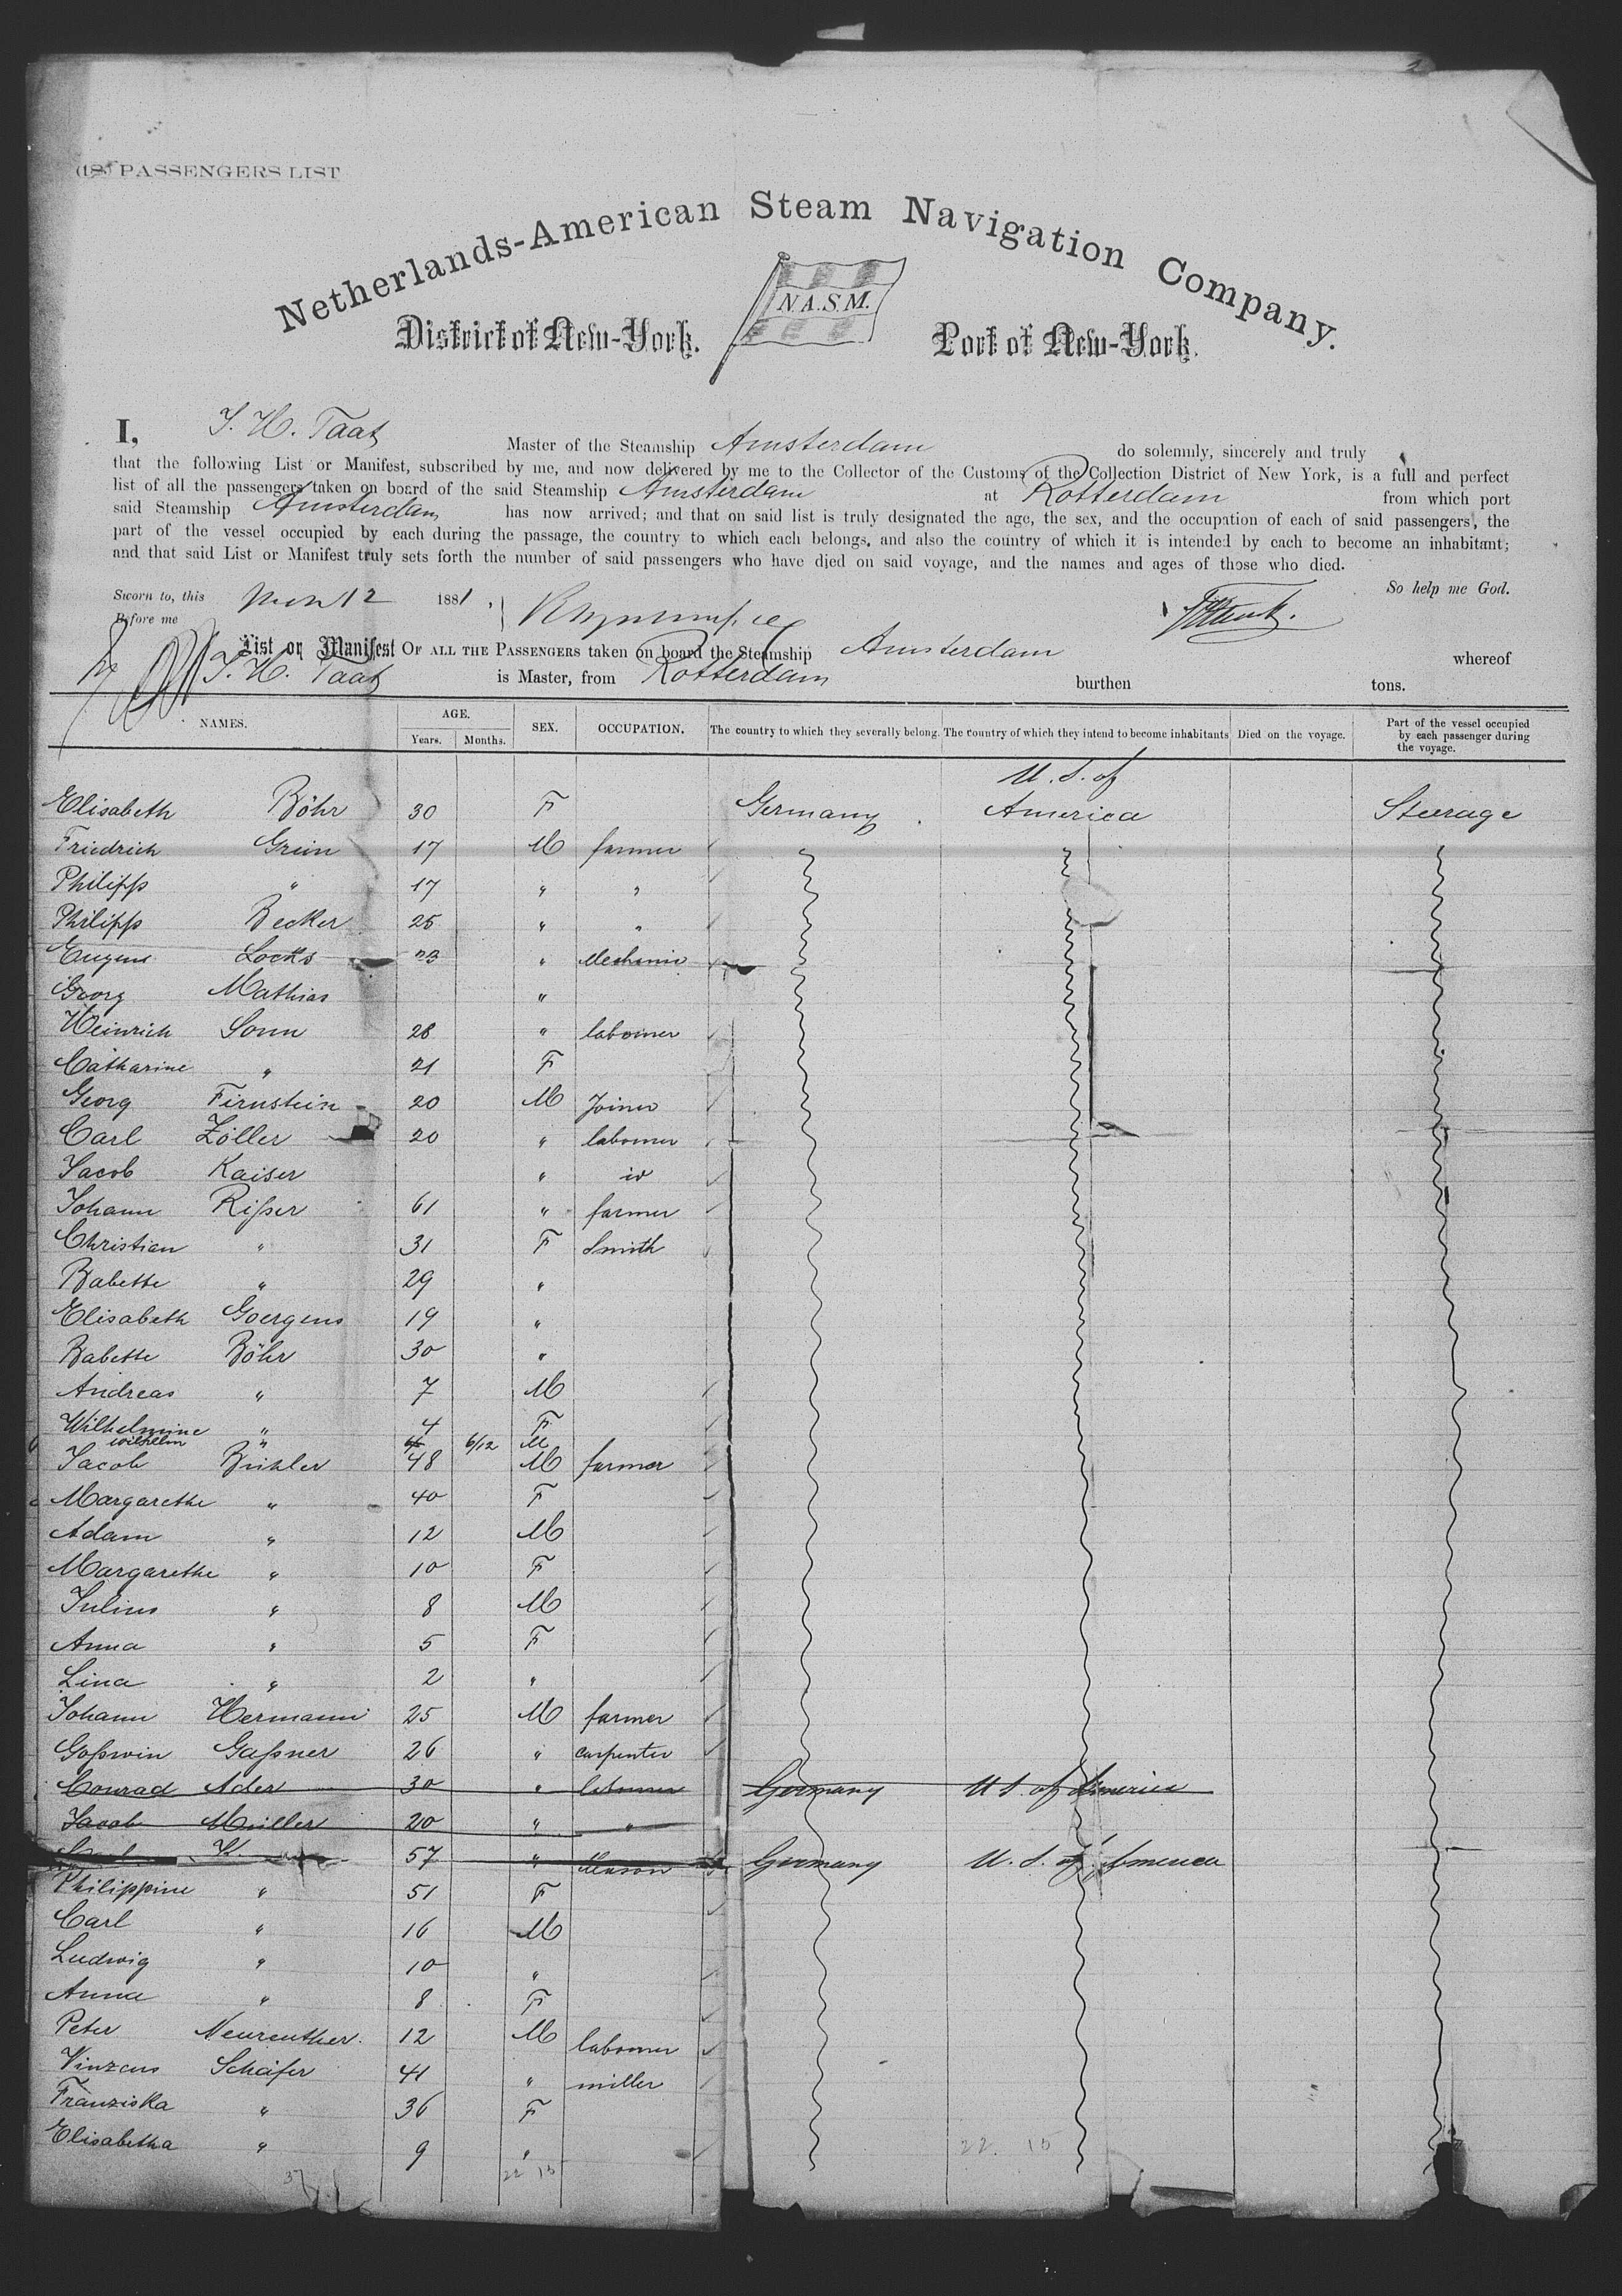 (18) PASSENGERS LIST
Netherlands-American Steam Navigation Company.
N.A.S.M.
District of New-York. Port of New-York.
I, J. H. Taat Master of the Steamship Amsterdam do solemnly, sincerely and truly
that the following List or Manifest, subscribed by me, and now delivered by me to the Collector of the Customs of the Collection District of New York, is a full and perfect
list of all the passengers taken on board of the said Steamship Amsterdam at Rotterdam from which port
said Steamship Amsterdam has now arrived; and that on said list is truly designated the age, the sex, and the occupation of each of said passengers, the
part of the vessel occupied by each during the passage, the country to which each belongs, and also the country of which it is intended by each to become an inhabitant;
and that said List or Manifest truly sets forth the number of said passengers who have died on said voyage, and the names and ages of those who died.
So help me God.
Sworn to, this 12 1881,
Before me
List or Manifest OF ALL THE PASSENGERS taken on board the Steamship Amsterdam whereof
J. H. Taat is Master, from Rotterdam burthen tons.
NAMES. AGE. Years. Months. SEX. OCCUPATION. The country to which they severally belong. The country of which they intend to become inhabitants Died on the voyage. Part of the vessel occupied by each passenger during the voyage.
U. S. of
Elisabeth Böhr 30 F Germany America Steerage
Friedrich Grein 17 M farmer
Philipp " 17 " "
Philipp Becker 25 " "
Eugene Locks 23 " Mechanic
Georg Mathias "
Heinrich Sonn 28 " labourer
Catharine " 21 F
Georg Firnstein 20 M Joiner
Carl Zöller 20 " labourer
Jacob Kaiser " id
Johann Rißer 61 " farmer
Christian " 31 F Smith
Babette " 29 "
Elisabeth Goergens 19 "
Babette Böhr 30 "
Andreas " 7 M
Wilhelmine " 4 F
Wilhelm " 6/12 M
Jacob Bühler 48 M farmer
Margarethe " 40 F
Adam " 12 M
Margarethe " 10 F
Julius " 8 M
Anna " 5 F
Lina " 2 "
Johann Hermann 25 M farmer
Goßwin Gaßner 26 " carpenter
Conrad Ader 30 " labourer Germany U S. of America
Jacob Müller 20 " "
57 " Mason Germany U. S. of America
Philippine " 51 F
Carl " 16 M
Ludwig " 10 "
Anna " 8 F
Peter Neureuther 12 M labourer
Vinzens Schäfer 41 " miller
Franziska " 36 F
Elisabetha " 9 "
22 15 22. 15